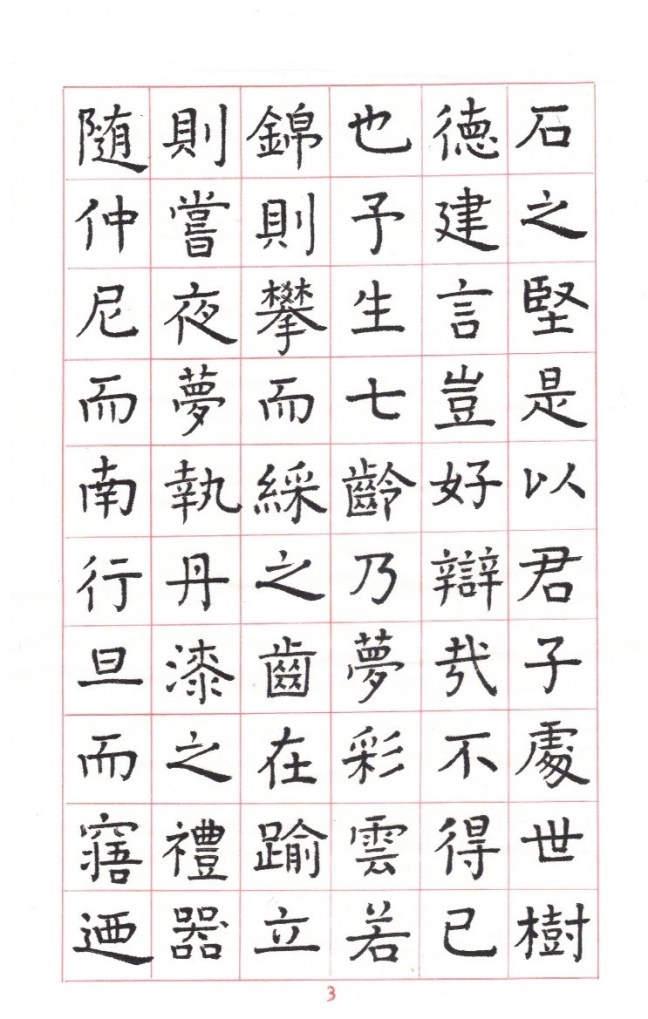 石之堅是以君子處世樹
德建言豈好辯哉不得已
也予生七齡乃夢彩雲若
錦則攀而綵之齒在踰立
則嘗夜夢執丹漆之禮器
随仲尼而南行旦而寤迺
3